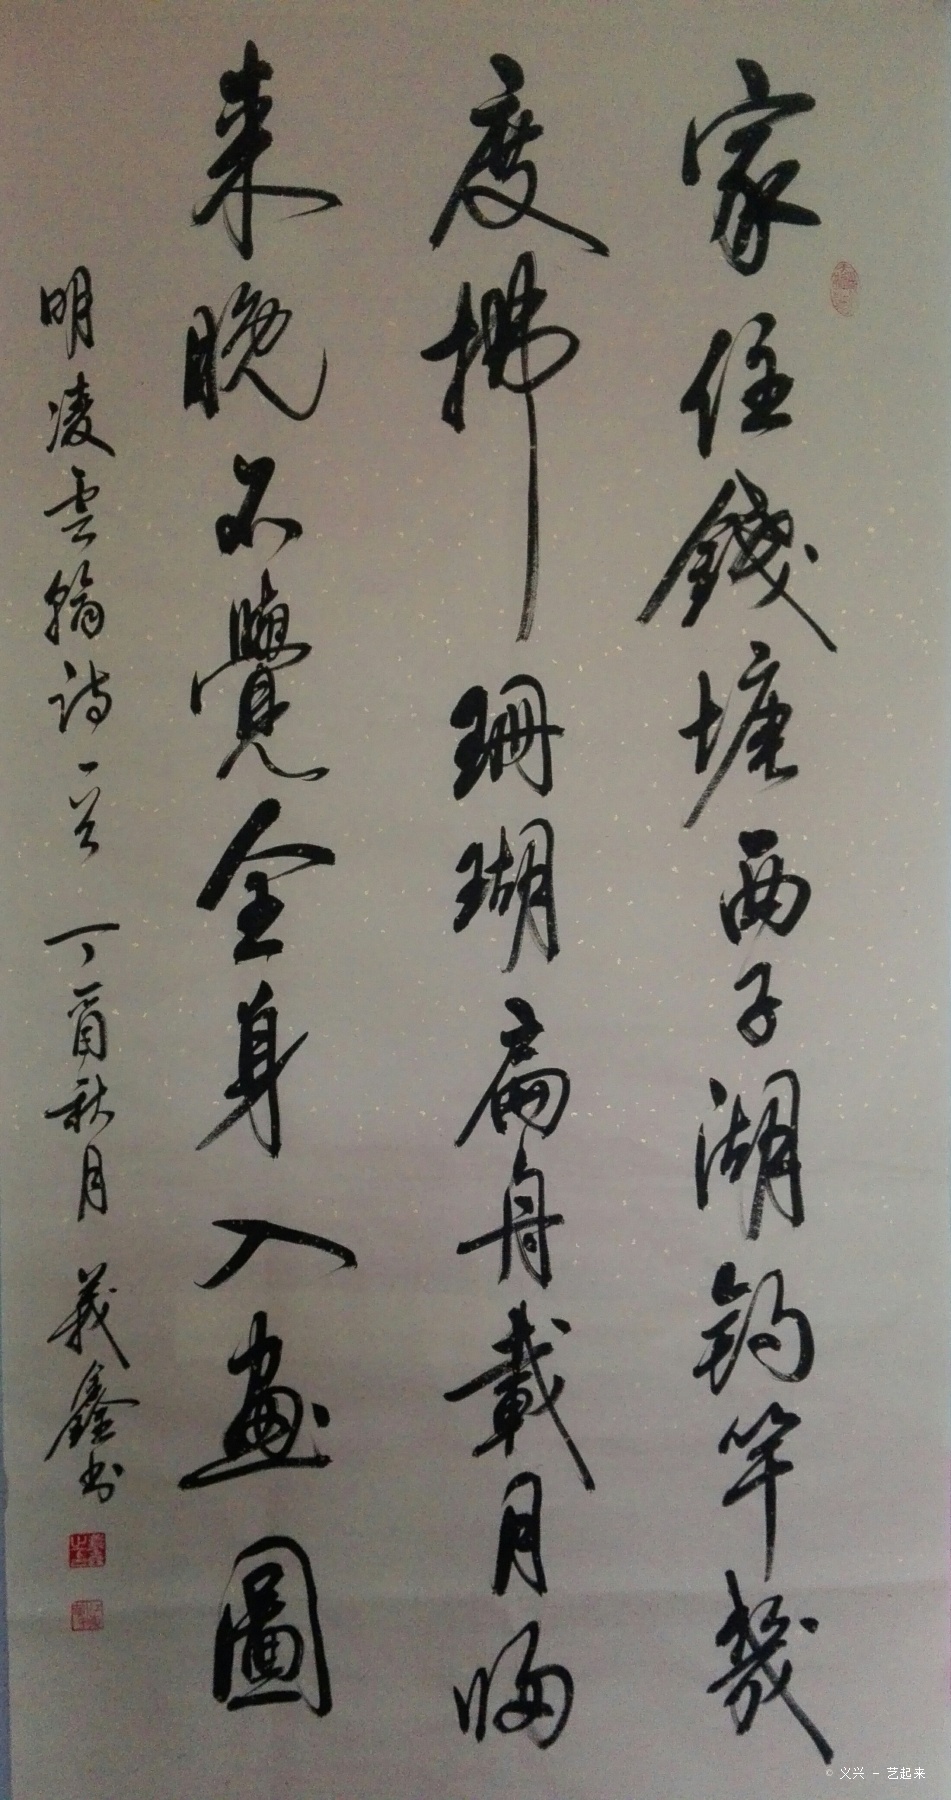 家住錢塘西子湖釣竿幾
度拂珊瑚扁舟載月歸
來晚不覺全身入畫圖
明凌雲翰詩一首 丁酉秋月 義鑫書
© 义兴 - 艺起来